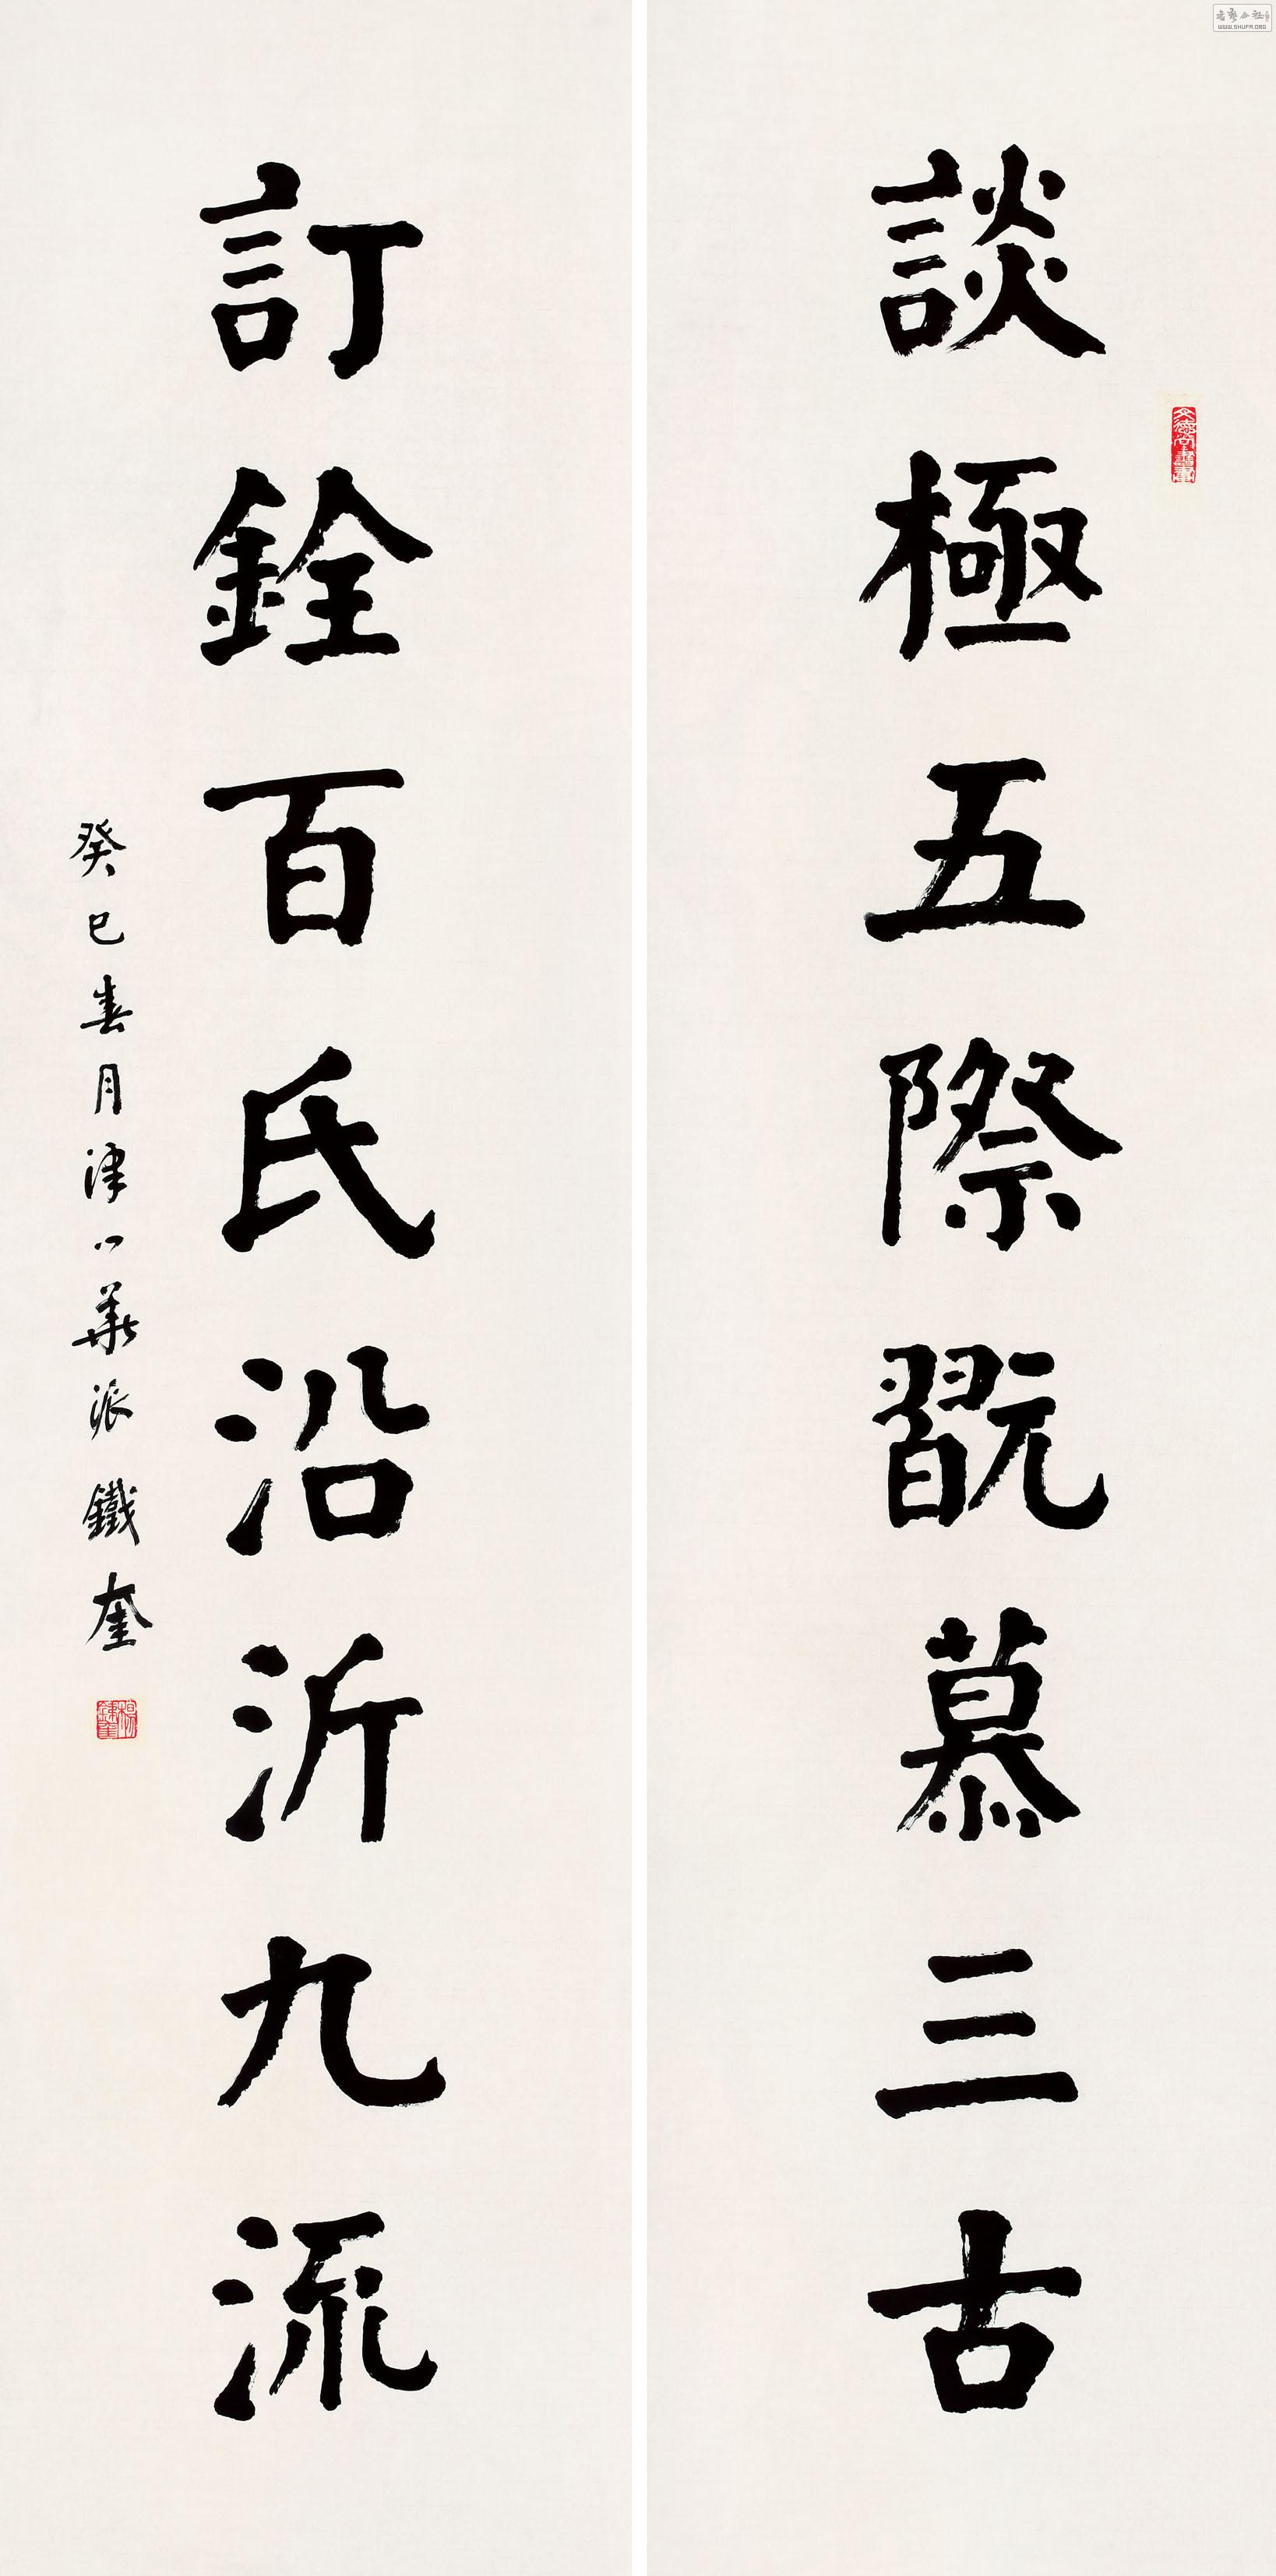 談極五際翫慕三古
訂銓百氏沿沂九流
癸巳春月津门華派鐵奎
WWW.SHUFA.ORG